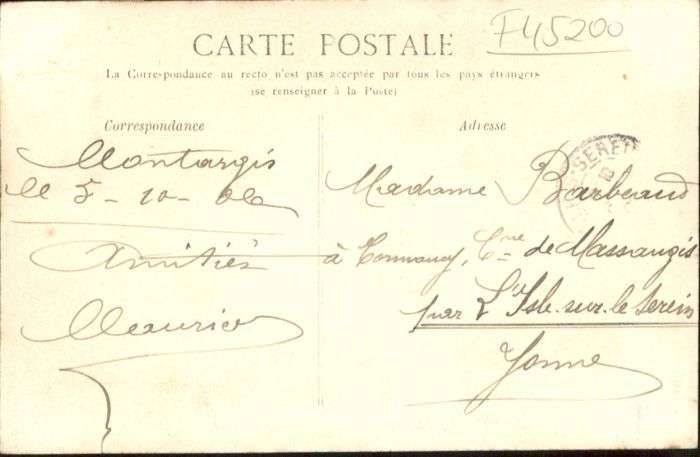 F45200
CARTE POSTALE
La Correspondance au recto n'est pas acceptée par tous les pays étrangers
(se renseigner à la Poste)
Correspondance
Montargis
le 5-10-
Amitiés
Maurice
Adresse
SEREIN
Madame Barbeaud
à Tormancy, Cne de Massangis
par L'Isle-sur-le Serein
Yonne